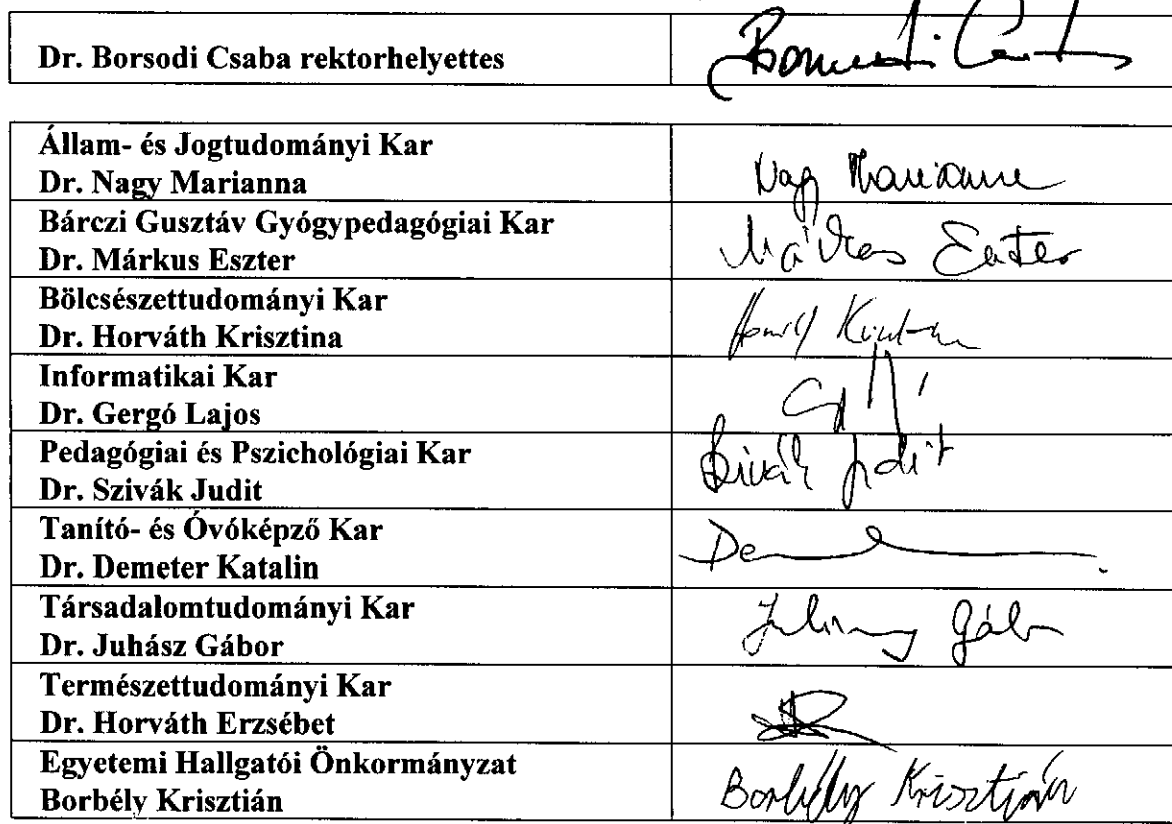 Dr. Borsodi Csaba rektorhelyettes
Állam- és Jogtudományi Kar
Dr. Nagy Marianna
Nagy Marianna
Bárczi Gusztáv Gyógypedagógiai Kar
Dr. Márkus Eszter
Márkus Eszter
Bölcsészettudományi Kar
Dr. Horváth Krisztina
Informatikai Kar
Dr. Gergó Lajos
Pedagógiai és Pszichológiai Kar
Dr. Szivák Judit
Szivák Judit
Tanító- és Óvóképző Kar
Dr. Demeter Katalin
Társadalomtudományi Kar
Dr. Juhász Gábor
Juhász Gábor
Természettudományi Kar
Dr. Horváth Erzsébet
Egyetemi Hallgatói Önkormányzat
Borbély Krisztián
Borbély Krisztián